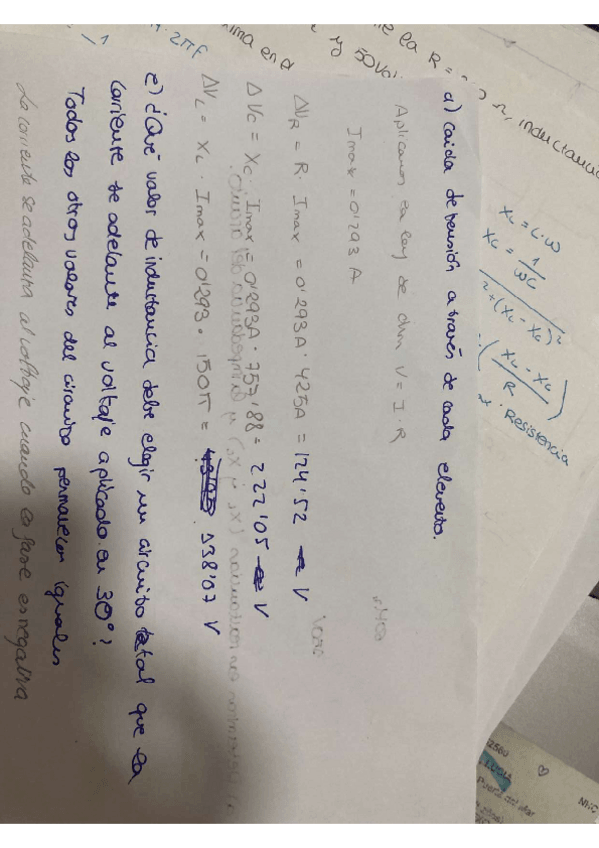 d) Caida de tensión a través de cada elemento.
Aplicamos la ley de Ohm V = I · R
Imax = 0'293 A
ΔVR = R · Imax = 0'293A · 425Ω = 124'52 V
ΔVC = XC · Imax = 0'293A · 757'88 = 222'05 V
ΔVL = XL · Imax = 0'293 · 150π = 138'07 V
e) ¿Qué valor de inductancia debe elegir un circuito tal que la
corriente se adelante al voltaje aplicado en 30°?
Todos los otros valores del circuito permanecen iguales
La corriente se adelanta al voltaje cuando la fase es negativa
la R =
inductancia
y 50
2πf
XL = L·W
XC = 1/WC
2 + (XL - XC)²
(XL - XC / R)
Resistencia
2560
LUCIA